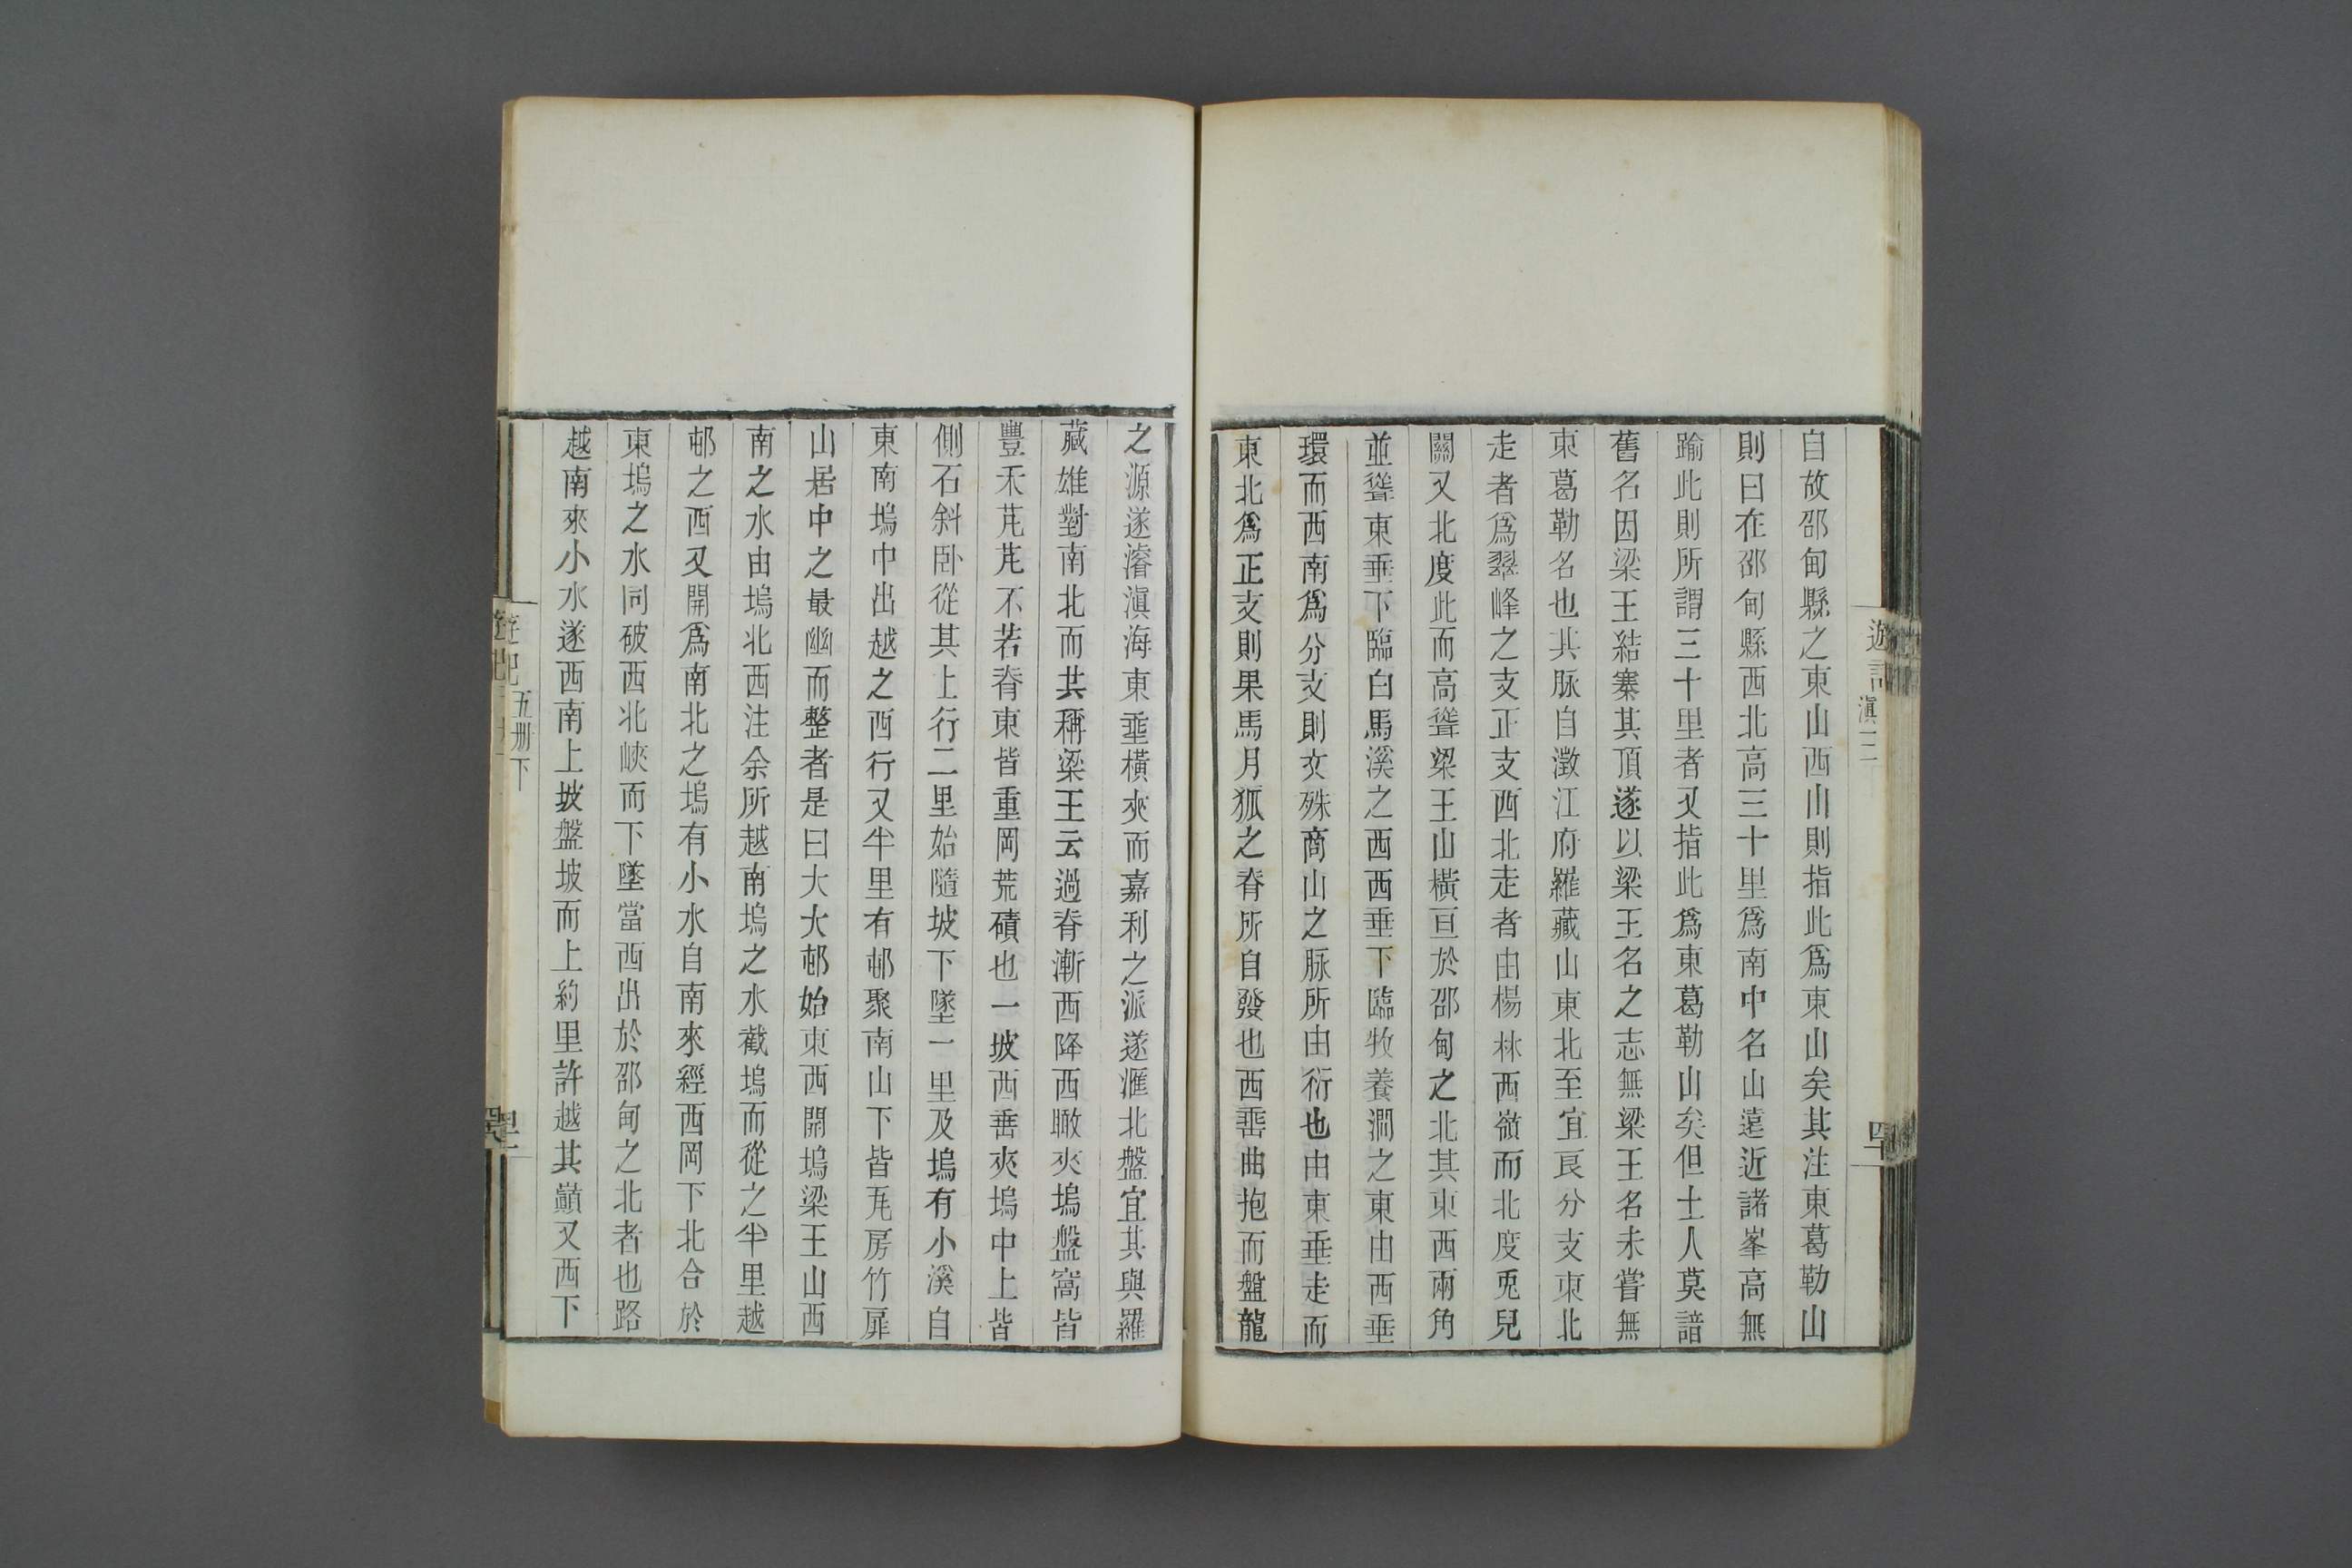 自故邵甸縣之東山西山則指此爲東山矣其注東葛勒山
則曰在邵甸縣西北高三十里爲南中名山遠近諸峯高無
踰此則所謂三十里者又指此爲東葛勒山矣但土人莫諳
舊名因梁王結寨其頂遂以梁王名之志無梁王名未嘗無
東葛勒名也其脉自澂江府羅藏山東北至宜良分支東北
走者爲翠峰之支正支西北走者由楊林西嶺而北度兎兒
關又北度此而高聳梁王山橫亘於邵甸之北其東西兩角
並聳東垂下臨白馬溪之西西垂下臨牧養澗之東由西垂
環而西南爲分支則文殊商山之脉所由衍也由東垂走而
東北爲正支則果馬月狐之脊所自發也西垂曲抱而盤龍
之源遂濬滇海東垂橫夾而嘉利之派遂滙北盤宜其與羅
藏雄對南北而共稱梁王云過脊漸西降西瞰夾塢盤窩皆
豐禾芃芃不若脊東皆重岡荒磧也一坡西垂夾塢中上皆
側石斜卧從其上行二里始隨坡下墜一里及塢有小溪自
東南塢中出越之西行又半里有邨聚南山下皆瓦房竹扉
山居中之最幽而整者是曰大大邨始東西開塢梁王山西
南之水由塢北西注余所越南塢之水截塢而從之半里越
邨之西又開爲南北之塢有小水自南來經西岡下北合於
東塢之水同破西北峽而下墜當西出於邵甸之北者也路
越南來小水遂西南上坡盤坡而上約里許越其巔又西下
遊記
滇三
遊記
五册下